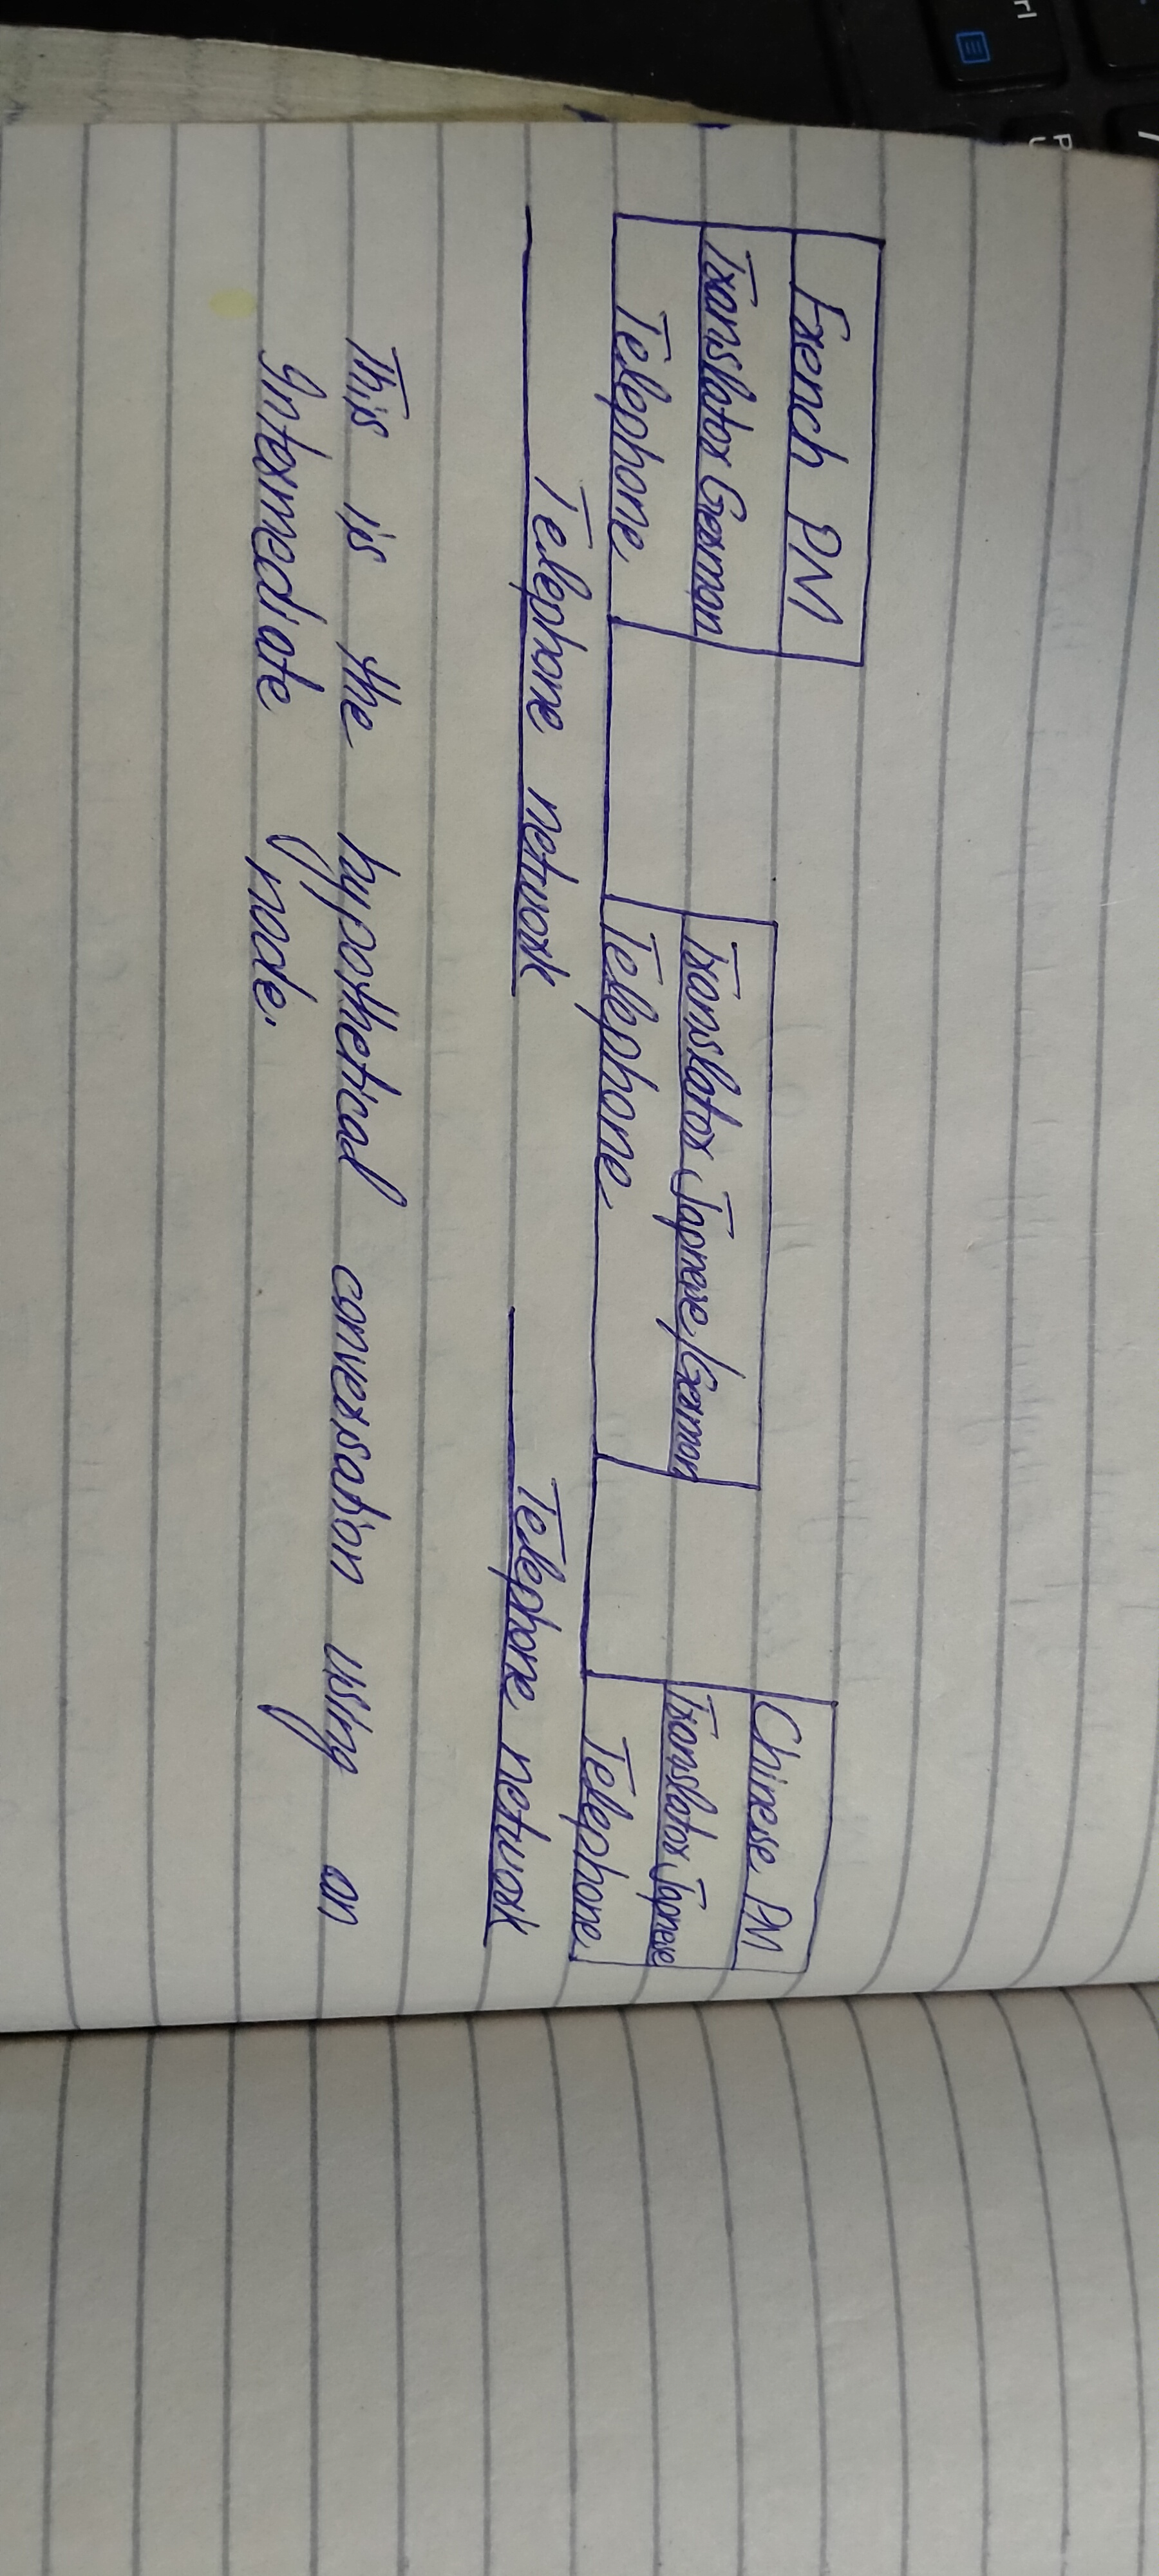 French PM
Translator German
Telephone
Translator Japnese/German
Telephone
Chinese PM
Translator Japnese
Telephone
Telephone network
Telephone network
This is the hypothetical conversation using an
Intermediate node.